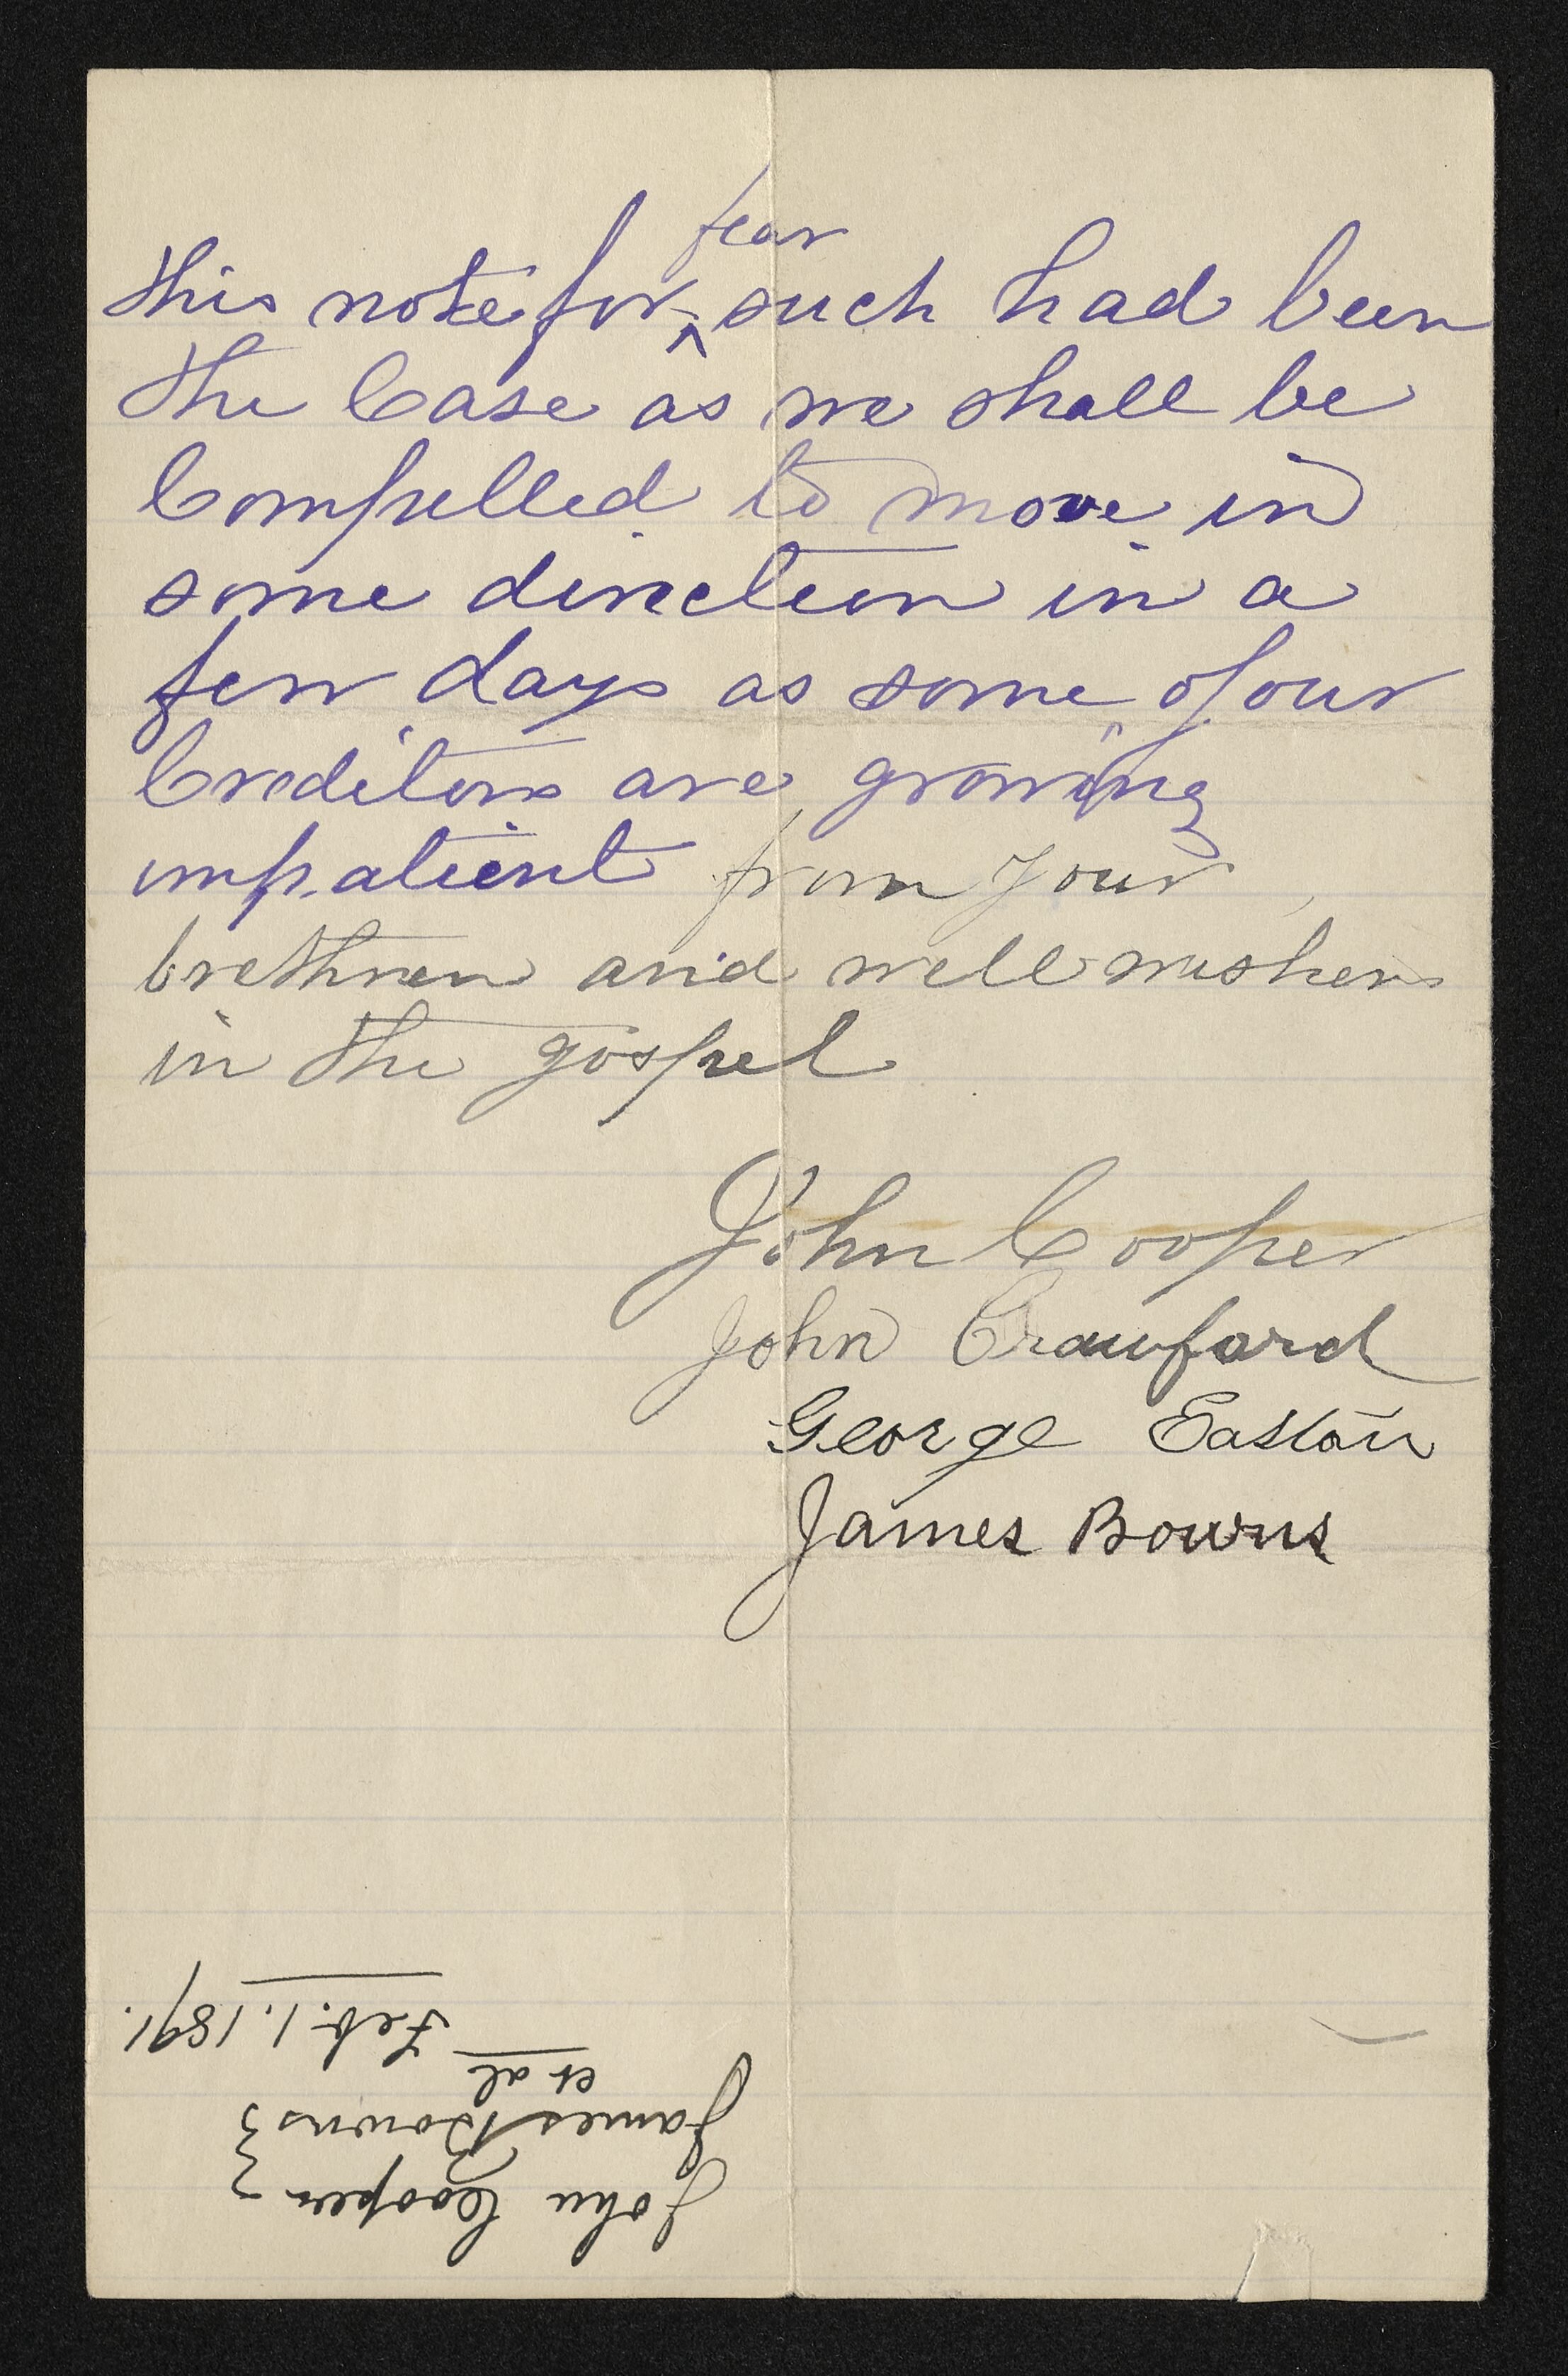 this note for fear such had been
the Case as we shall be
Compelled to move in
some direction in a
few days as some of our
Creditors are growing
impatient from your
brethren and well wishers
in the gospel
John Cooper
John Crawford
George Easton
James Bowns
John Cooper
James Bowns
et al
Feb. 1. 1891.